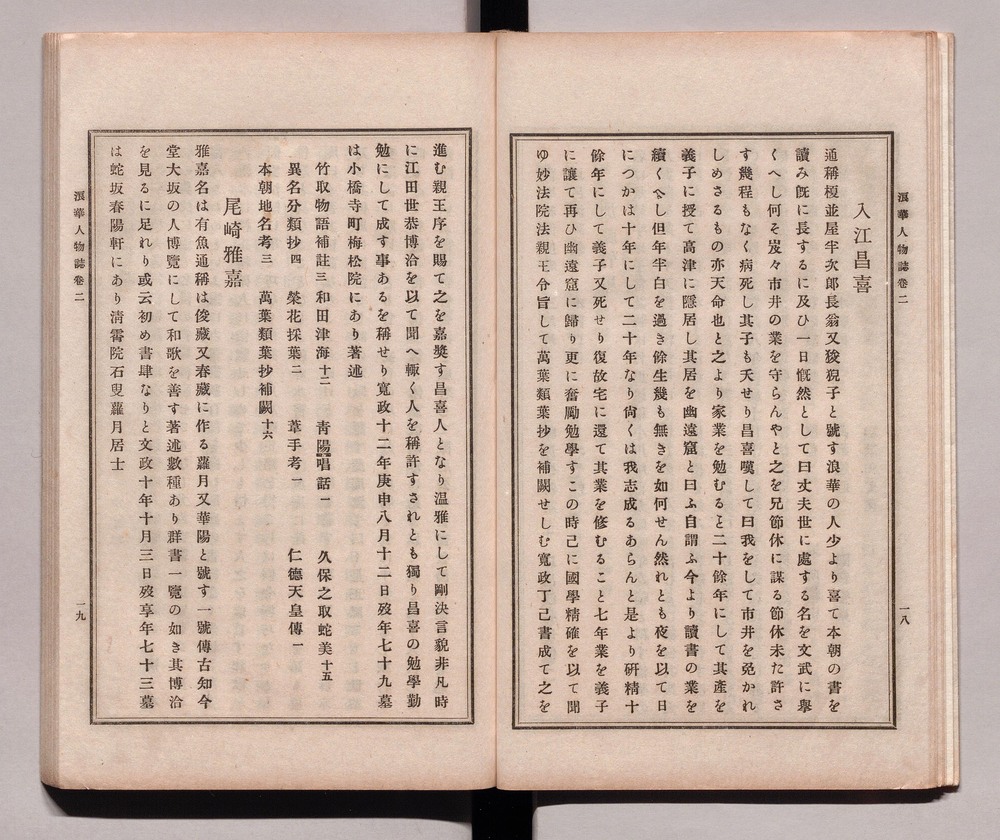 浪華人物誌卷二
一八
入江昌喜
通稱榎並屋半次郎長翁又狻猊子と號す浪華の人少より喜て本朝の書を
讀み既に長するに及ひ一日慨然として曰丈夫世に處する名を文武に擧
くへし何そ岌々市井の業を守らんやと之を兄節休に謀る節休未た許さ
す幾程もなく病死し其子も夭せり昌喜嘆して曰我をして市井を免かれ
しめさるもの亦天命也と之より家業を勉むると二十餘年にして其產を
義子に授て高津に隱居し其居を幽遠窟と曰ふ自謂ふ今より讀書の業を
續くへし但年半白を過き餘生幾も無きを如何せん然れとも夜を以て日
につかは十年にして二十年なり尙くは我志成るあらんと是より硏精十
餘年にして義子又死せり復故宅に還て其業を修むること七年業を義子
に讓て再ひ幽遠窟に歸り更に奮勵勉學すこの時己に國學精確を以て聞
ゆ妙法院法親王令旨して萬葉類葉抄を補闕せしむ寬政丁己書成て之を
進む親王序を賜て之を嘉奬す昌喜人となり温雅にして剛決言貌非凡時
に江田世恭博洽を以て聞へ輙く人を稱許すされとも獨り昌喜の勉學勤
勉にして成す事あるを稱せり寬政十二年庚申八月十二日歿年七十九墓
は小橋寺町梅松院にあり著述
竹取物語補註三　和田津海十二　靑陽唱話一　久保之取蛇美十五
異名分類抄四　榮花採葉二　葦手考一　仁德天皇傳一
本朝地名考三　萬葉類葉抄補闕十六
尾崎雅嘉
雅嘉名は有魚通稱は俊藏又春藏に作る蘿月又華陽と號す一號傳古知今
堂大坂の人博覽にして和歌を善す著述數種あり群書一覽の如き其博洽
を見るに足れり或云初め書肆なりと文政十年十月三日歿享年七十三墓
は蛇坂春陽軒にあり淸霄院石叟蘿月居士
浪華人物誌卷二
一九